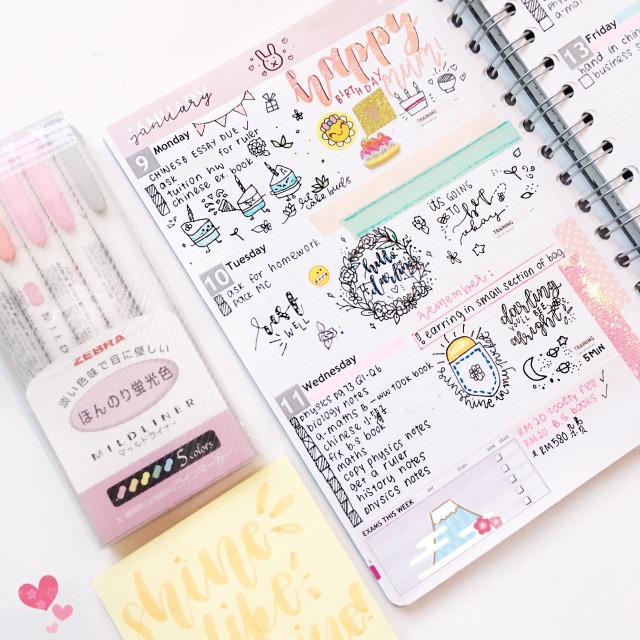 JANUARY
january
happy
BIRTHDAY
MUM!
9 Monday
CHINESE ESSAY DUE ✓
ask for ruler
Tuition hw
chinese ex book
TRAINING
10 Tuesday
ask for homework
race MC
WELL
hello
ITS GOING
TO BE
okay
TRAINING
remember:
Earning in small section of bag
darling
alright!
TRAINING
5 MIN
11 Wednesday
physics pg 23 Q1-Q6
biology notes
a.maths B- WW TOOK BOOK
chinese
fix b.s book
maths
copy physics notes
get a ruler
history notes
physics notes
RM 20 society fee
RM20 B.S books ✓
EXAMS THIS WEEK
DAY
STUDY
13 Friday
hand in chin
business s
ZEBRA
淡い色味で目に優しい
ほんのり蛍光色
MILDLINER
マイルドライナー
5 colors
shine
like